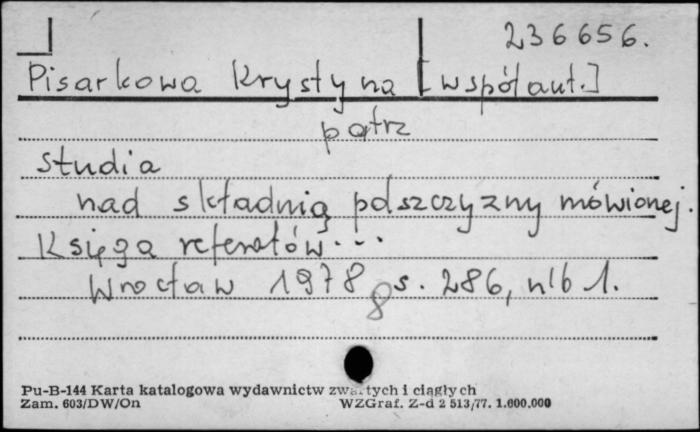 236656.
Pisarkowa Krystyna [współaut.]
patrz
Studia
nad składnią polszczyzny mówionej.
Księga referatów...
Wrocław 1978 8 s. 286, nlb 1.
Pu-B-144 Karta katalogowa wydawnictw zwartych i ciągłych
Zam. 603/DW/On WZGraf. Z-d 2 513/77. 1.000.000